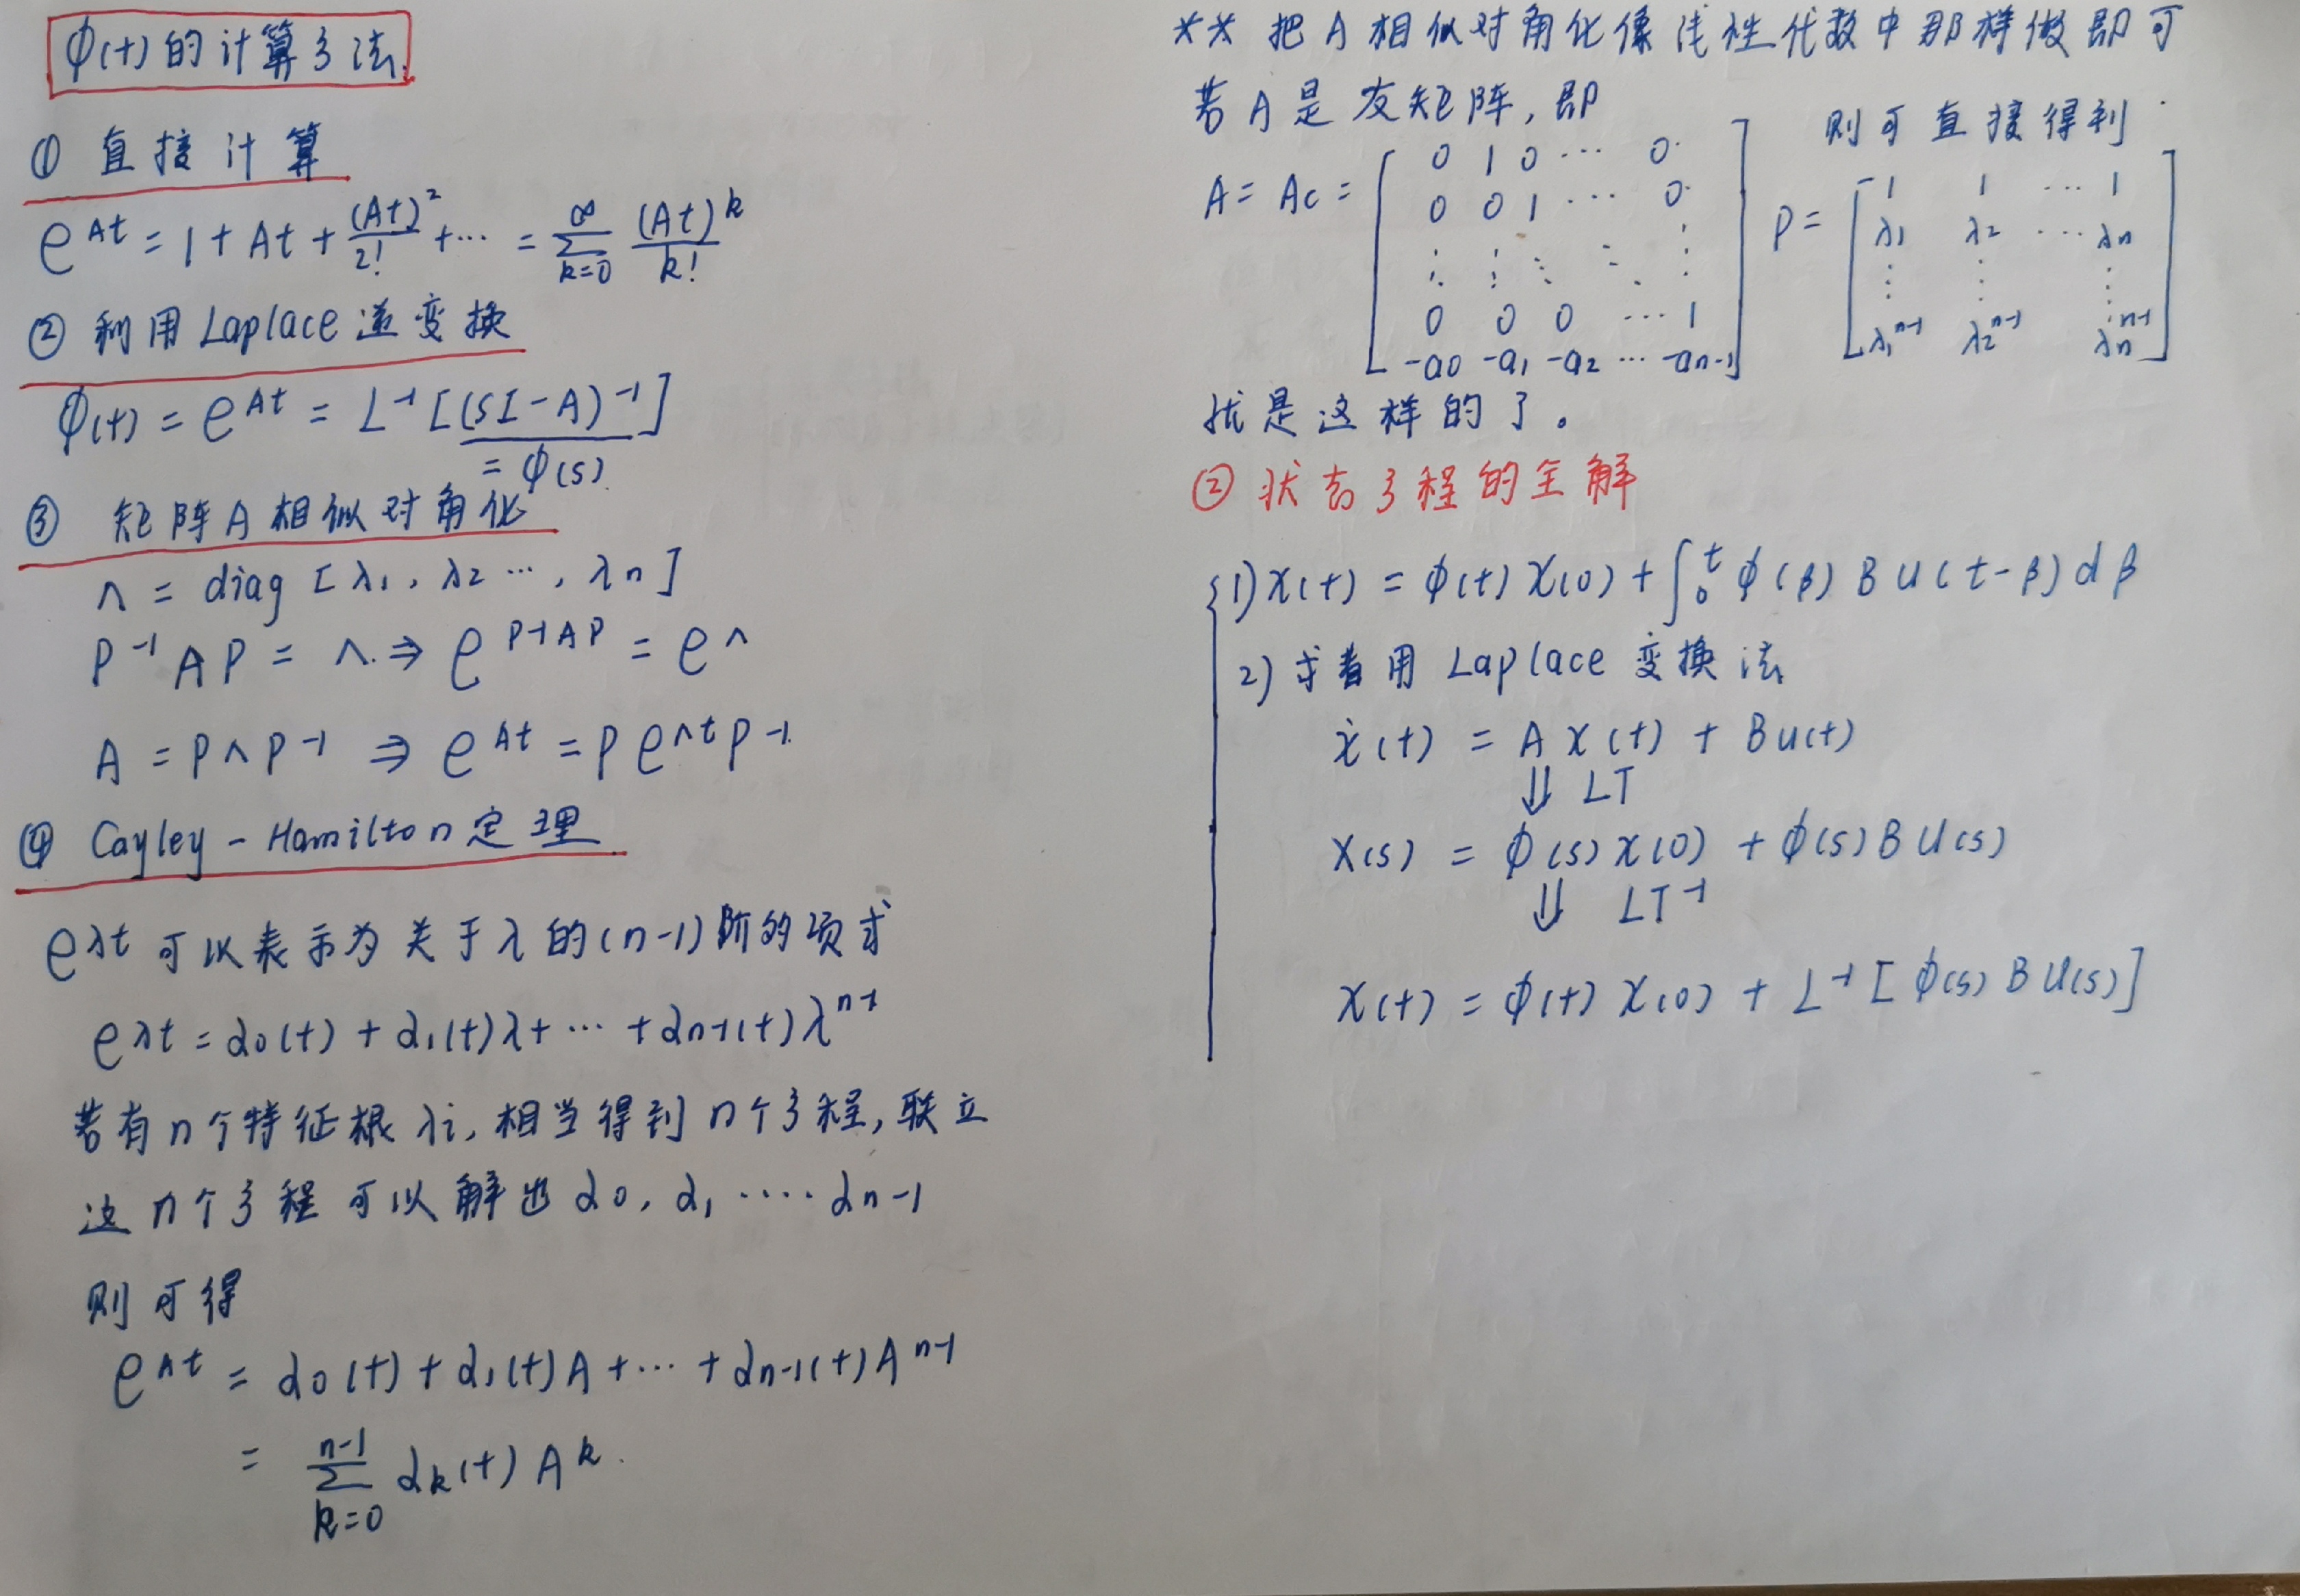 φ(t)的计算方法
① 直接计算
e^{At} = 1 + At + \frac{(At)^2}{2!} + ⋯ = \sum_{k=0}^{∞} \frac{(At)^k}{k!}
② 利用Laplace逆变换
φ(t) = e^{At} = L^{-1}[(sI-A)^{-1}]
= φ(s)
③ 矩阵A相似对角化
Λ = diag[λ_1, λ_2 ⋯, λ_n]
P^{-1}AP = Λ. ⇒ e^{P^{-1}AP} = e^Λ
A = PΛP^{-1} ⇒ e^{At} = Pe^{Λt}P^{-1}
④ Cayley-Hamilton定理
e^{λt} 可以表示为关于λ的(n-1)阶的项式
e^{λt} = α_0(t) + α_1(t)λ + ⋯ + α_{n-1}(t)λ^{n-1}
若有n个特征根λ_i, 相当得到n个方程, 联立
这n个方程可以解出α_0, α_1 ⋯⋯ α_{n-1}
则可得
e^{At} = α_0(t) + α_1(t)A + ⋯ + α_{n-1}(t)A^{n-1}
= \sum_{k=0}^{n-1} α_k(t)A^k.
** 把A相似对角化像线性代数中那样做即可
若A是友矩阵, 即
A = Ac = \begin{bmatrix} 0 & 1 & 0 & ⋯ & 0 \\ 0 & 0 & 1 & ⋯ & 0 \\ ⋮ & ⋮ & ⋮ & ⋱ & ⋮ \\ 0 & 0 & 0 & ⋯ & 1 \\ -a_0 & -a_1 & -a_2 & ⋯ & -a_{n-1} \end{bmatrix}
则可直接得到
P = \begin{bmatrix} 1 & 1 & ⋯ & 1 \\ λ_1 & λ_2 & ⋯ & λ_n \\ ⋮ & ⋮ & & ⋮ \\ λ_1^{n-1} & λ_2^{n-1} & & λ_n^{n-1} \end{bmatrix}
就是这样的了。
② 状态方程的全解
1) x(t) = φ(t)x(0) + ∫_0^t φ(β)Bu(t-β)dβ
2) 或者用Laplace变换法
ẋ(t) = Ax(t) + Bu(t)
⇓ LT
X(s) = φ(s)x(0) + φ(s)BU(s)
⇓ LT^{-1}
x(t) = φ(t)x(0) + L^{-1}[φ(s)BU(s)]